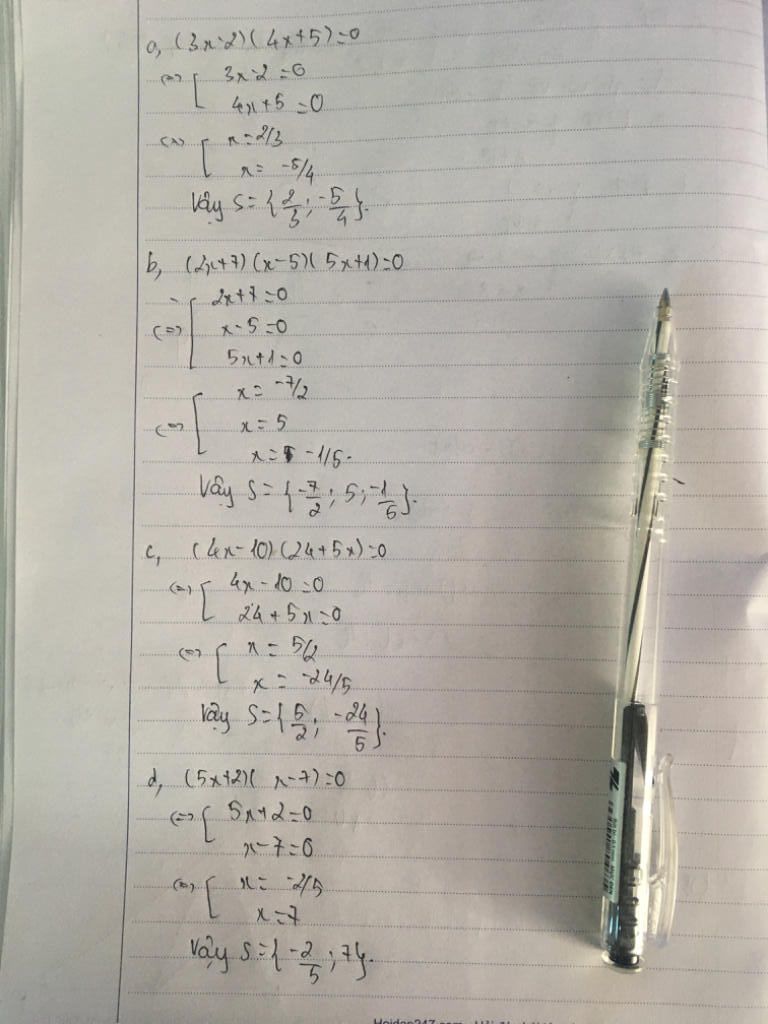 a, (3x-2)(4x+5)=0
<=> [ 3x-2=0
4x+5=0
<=> [ x=2/3
x= -5/4
Vậy S={2/3; -5/4}.
b, (2x+7)(x-5)(5x+1)=0
<=> [ 2x+7=0
x-5=0
5x+1=0
<=> [ x= -7/2
x=5
x= -1/5.
Vậy S={-7/2; 5; -1/5}.
c, (4x-10)(24+5x)=0
<=> [ 4x-10=0
24+5x=0
<=> [ x= 5/2
x= -24/5
Vậy S={5/2; -24/5}.
d, (5x+2)( x-7)=0
<=> [ 5x+2=0
x-7=0
<=> [ x= -2/5
x=7
Vậy S={-2/5; 7}.